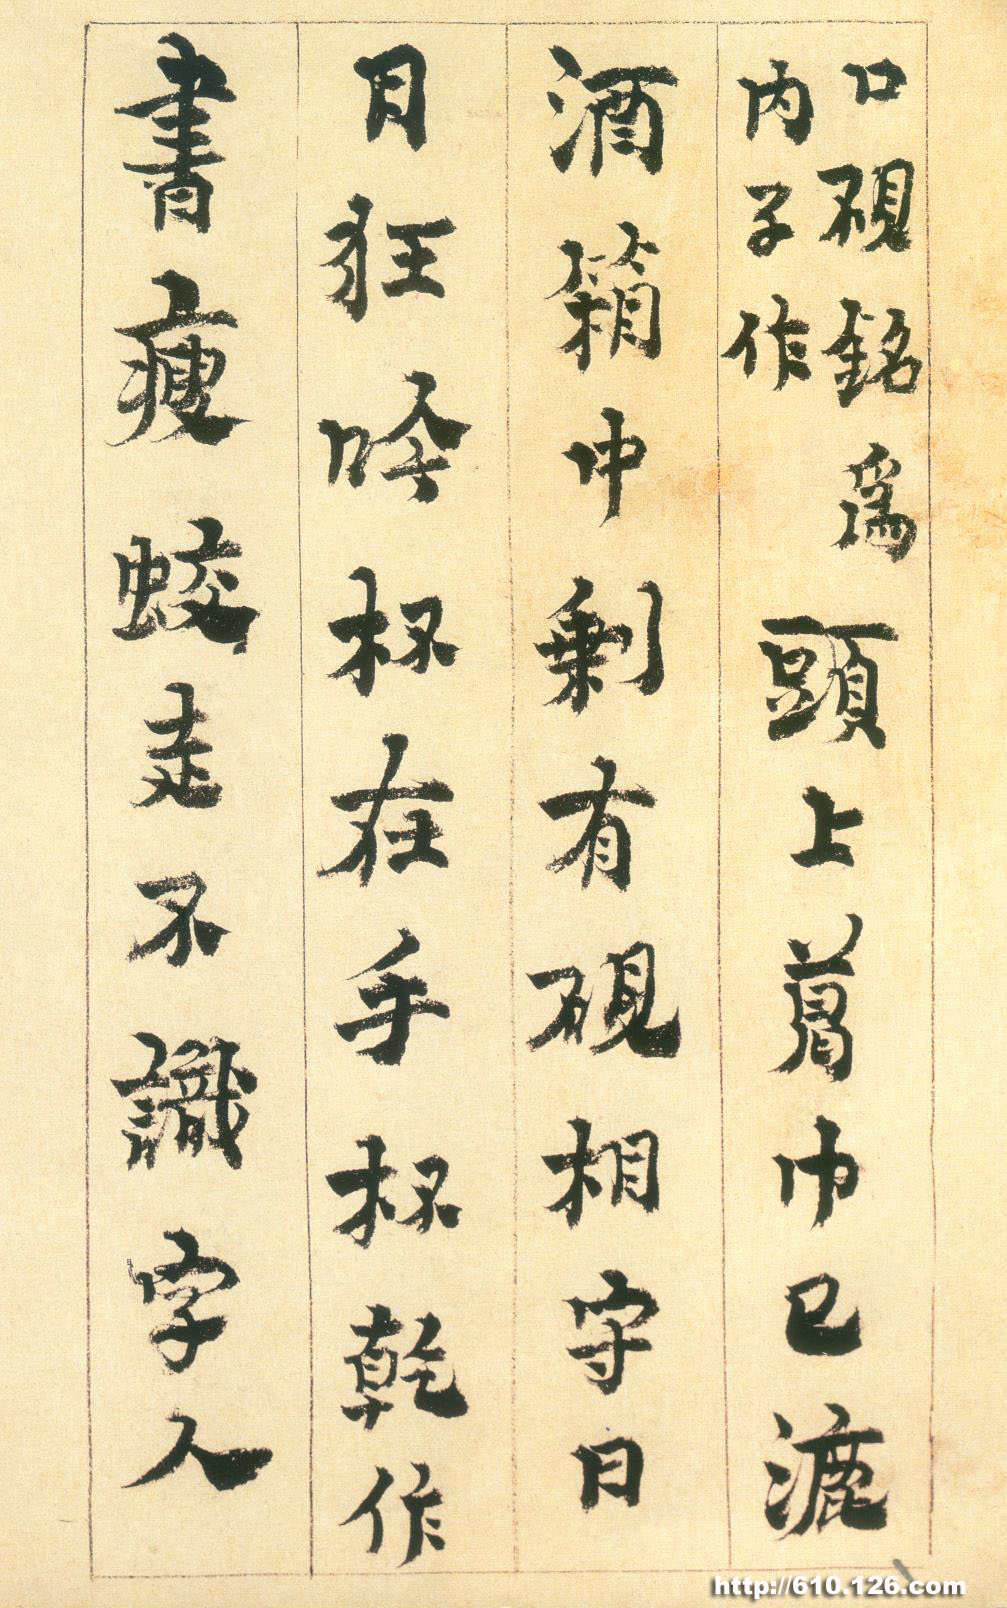 口硯銘為
内子作
頭上葛巾已漉
酒箱中剩有硯相守日
月狂吟杯在手杯乾作
書瘦蛟走不識字人
http://610.126.com